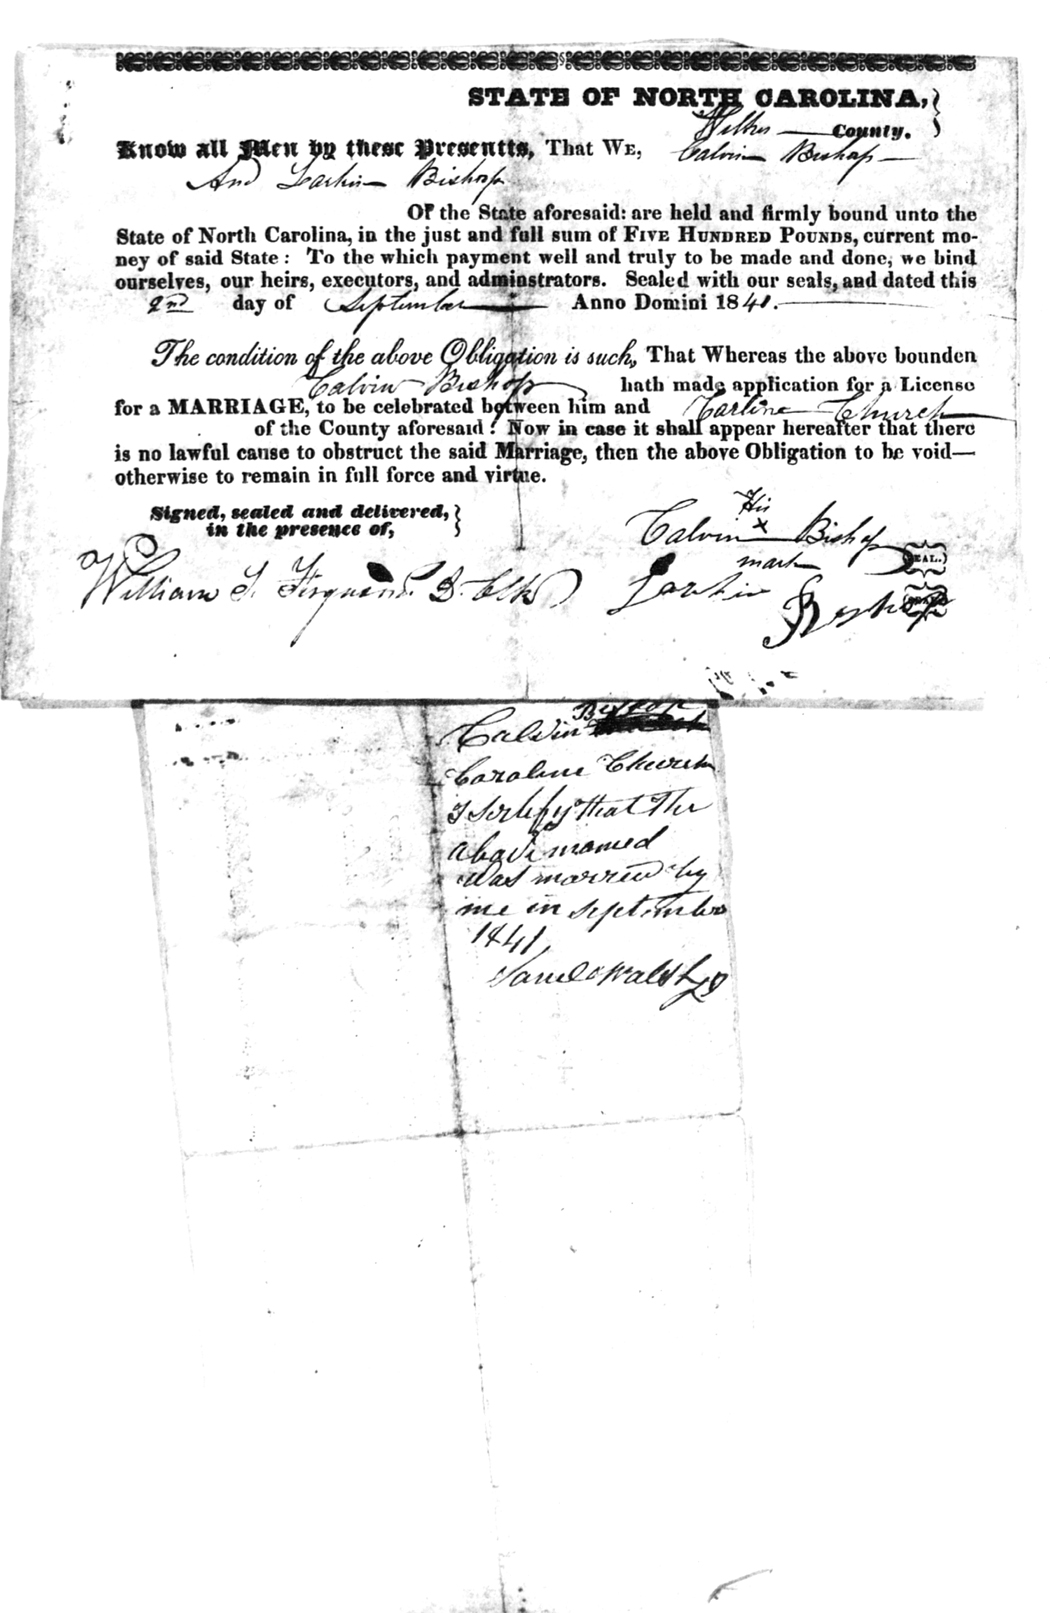 STATE OF NORTH CAROLINA,
Wilkes County.
Know all Men by these Presentts, That We, Calvin Bishop
And Larkin Bishop
Of the State aforesaid: are held and firmly bound unto the
State of North Carolina, in the just and full sum of Five Hundred Pounds, current mo-
ney of said State: To the which payment well and truly to be made and done, we bind
ourselves, our heirs, executors, and adminstrators. Sealed with our seals, and dated this
2nd day of September Anno Domini 1841.
The condition of the above Obligation is such, That Whereas the above bounden
Calvin Bishop hath made application for a License
for a MARRIAGE, to be celebrated between him and Carline Church
of the County aforesaid: Now in case it shall appear hereafter that there
is no lawful cause to obstruct the said Marriage, then the above Obligation to be void—
otherwise to remain in full force and virtue.
Signed, sealed and delivered,
in the presence of,
His
Calvin x Bishop SEAL.
mark
William S. Ferguson D. Clk
Larkin Bishop SEAL
Bishop
Calvin
Caroline Church
I sertify that the
above named
was married by
me in september
1841,
Saml Walsh JP